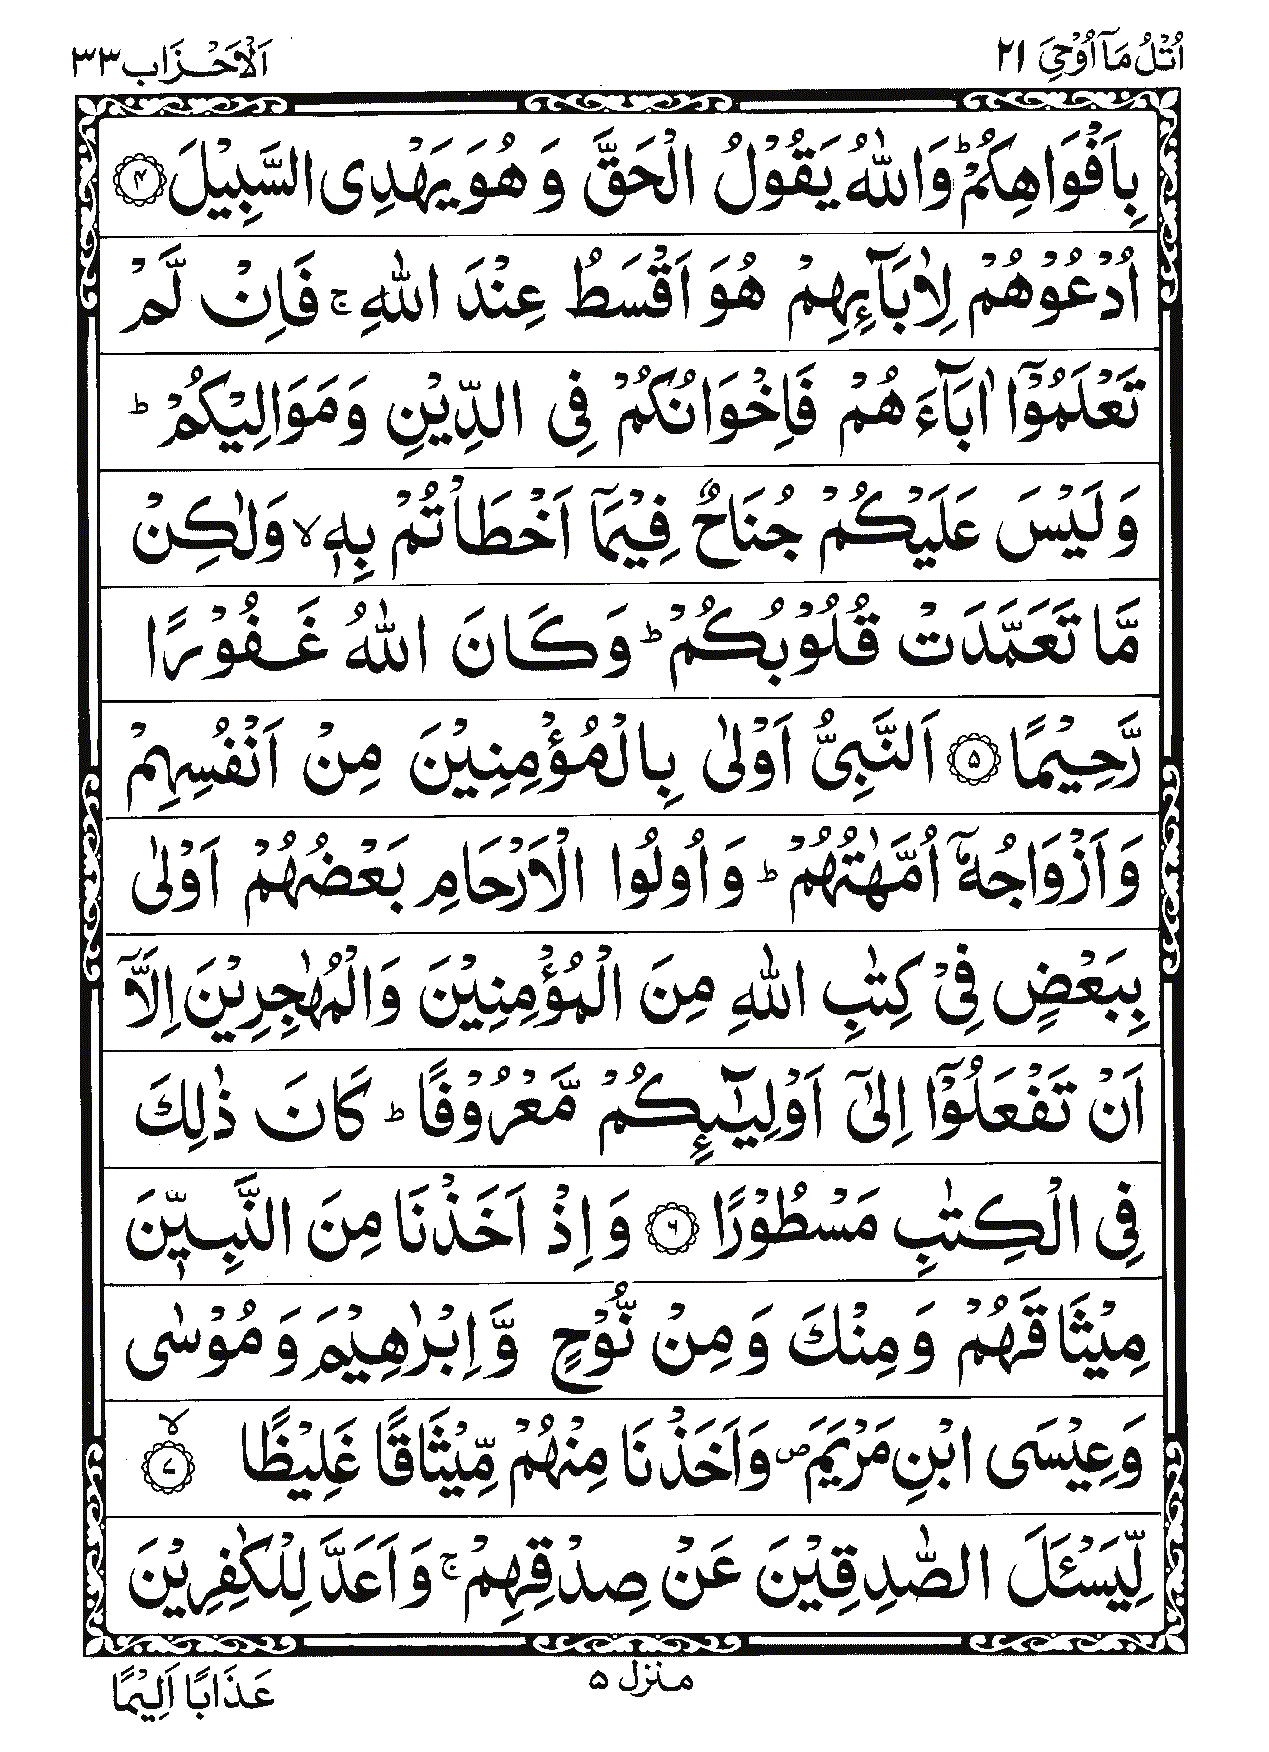 اُتْلُ مَآ اُوْحِیَ ۲۱
اَلْاَحْزَاب ۳۳
بِاَفْوَاهِكُمْ ؕ وَاللّٰهُ یَقُوْلُ الْحَقَّ وَ هُوَ یَهْدِی السَّبِیْلَ ۴
اُدْعُوْهُمْ لِاٰبَآىِٕهِمْ هُوَ اَقْسَطُ عِنْدَ اللّٰهِ ۚ فَاِنْ لَّمْ
تَعْلَمُوْۤا اٰبَآءَ هُمْ فَاِخْوَانُكُمْ فِی الدِّیْنِ وَمَوَالِیْكُمْ ؕ
وَ لَیْسَ عَلَیْكُمْ جُنَاحٌ فِیْمَاۤ اَخْطَاْتُمْ بِهٖ ۙ وَلٰكِنْ
مَّا تَعَمَّدَتْ قُلُوْبُكُمْ ؕ وَ كَانَ اللّٰهُ غَفُوْرًا
رَّحِیْمًا ۵ اَلنَّبِیُّ اَوْلٰی بِالْمُؤْمِنِیْنَ مِنْ اَنْفُسِهِمْ
وَاَزْوَاجُهٗۤ اُمَّهٰتُهُمْ ؕ وَ اُولُوا الْاَرْحَامِ بَعْضُهُمْ اَوْلٰی
بِبَعْضٍ فِیْ كِتٰبِ اللّٰهِ مِنَ الْمُؤْمِنِیْنَ وَالْمُهٰجِرِیْنَ اِلَّاۤ
اَنْ تَفْعَلُوْۤا اِلٰۤی اَوْلِیٰٓىِٕكُمْ مَّعْرُوْفًا ؕ كَانَ ذٰلِكَ
فِی الْكِتٰبِ مَسْطُوْرًا ۶ وَ اِذْ اَخَذْنَا مِنَ النَّبِیّٖنَ
مِیْثَاقَهُمْ وَ مِنْكَ وَ مِنْ نُّوْحٍ وَّ اِبْرٰهِیْمَ وَ مُوْسٰی
وَعِیْسَی ابْنِ مَرْیَمَ ۪ وَاَخَذْنَا مِنْهُمْ مِّیْثَاقًا غَلِیْظًا ۙ ۷
لِّیَسْـَٔلَ الصّٰدِقِیْنَ عَنْ صِدْقِهِمْ ۚ وَ اَعَدَّ لِلْكٰفِرِیْنَ
منزل ۵
عَذَابًا اَلِیْمًا